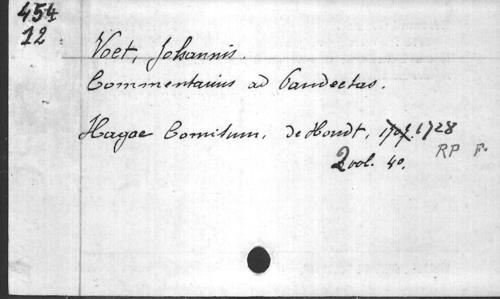 454
12
Voet, Johannis.
Commentarius ad Pandectas.
Hagae Comitum, de Hondt, 1707. 1728
2 vol. 4o.
RP F.